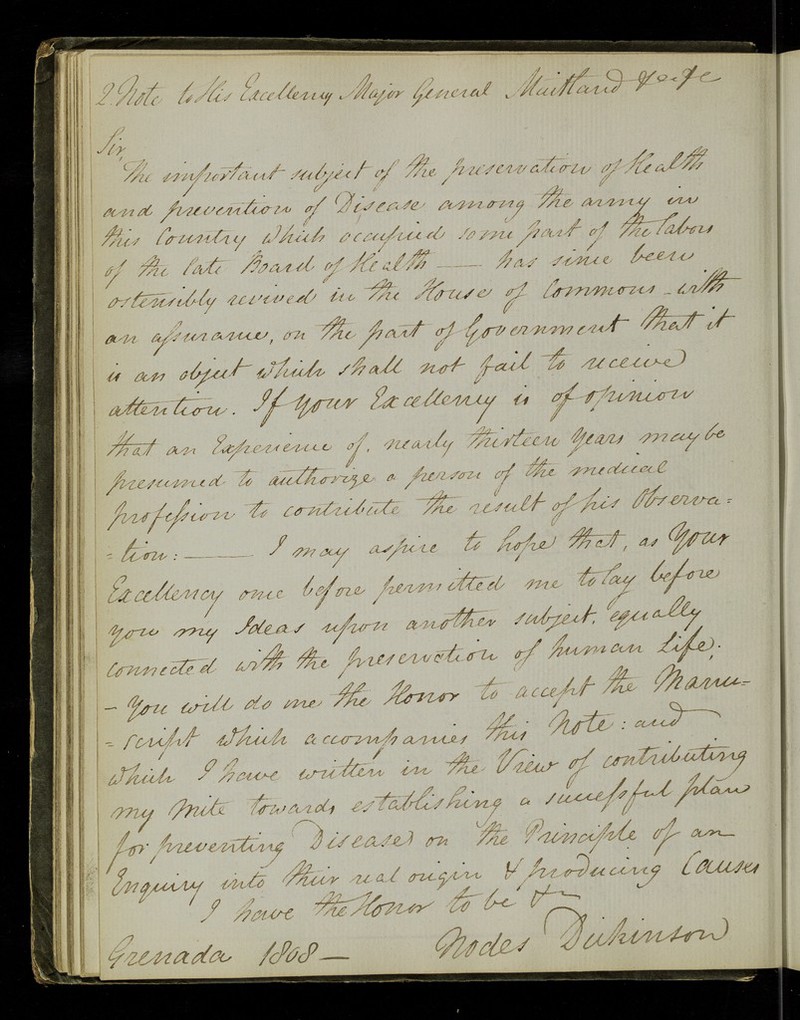 2. Note to His Excellency Major General Maitland &c. &c
Sir,
The important subject of the preservation of Health
and prevention of Disease among the army in
this Country which occupied some part of the labors
of the late Board of Health —— has since been
ostensibly revived in the House of Commons - with
an assurance, on the part of Government that it
is an object which shall not fail to receive
attention. If Your Excellency is of opinion
that an Experience of. nearly thirteen Years may be
presumed to authorize a person of the medical
profession to contribute the result of his Observa=
=tion: —— I may aspire to hope that, as Your
Excellency once before permitted me to lay before
you my Ideas upon another subject. equally
connected with the preservation of human Life;
- You will do me the Honor to accept the Manu=
=script which accompanies this Note: and
which I have written in the View of contributing
my Mite towards establishing a successful plan
for preventing Diseases on the Principle of an
Enquiry into their real origin & producing Causes
I have the Honor to be &c
Grenada 1808 — Nodes Dickinson